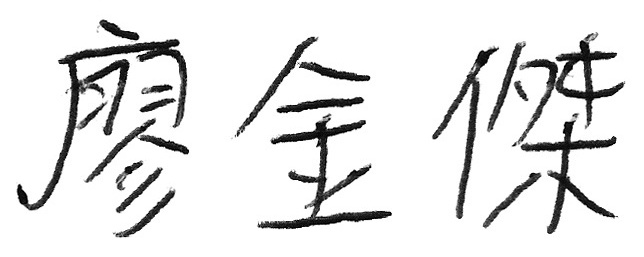 廖金傑